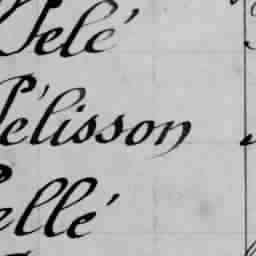 Pelé
Pélisson
ellé